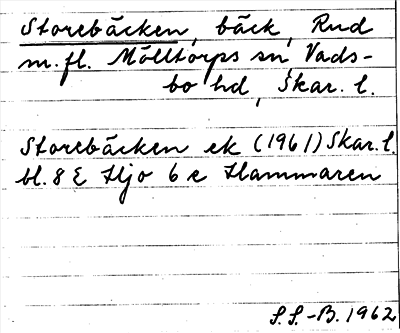 Storebäcken, bäck, Rud
m.fl. Mölltorps sn, Vads-
bo hd, Skar. l.
Storebäcken ek (1961) Skar. l.
bl. 8 E Hjo 6 e Hammaren
S.S.-B. 1962